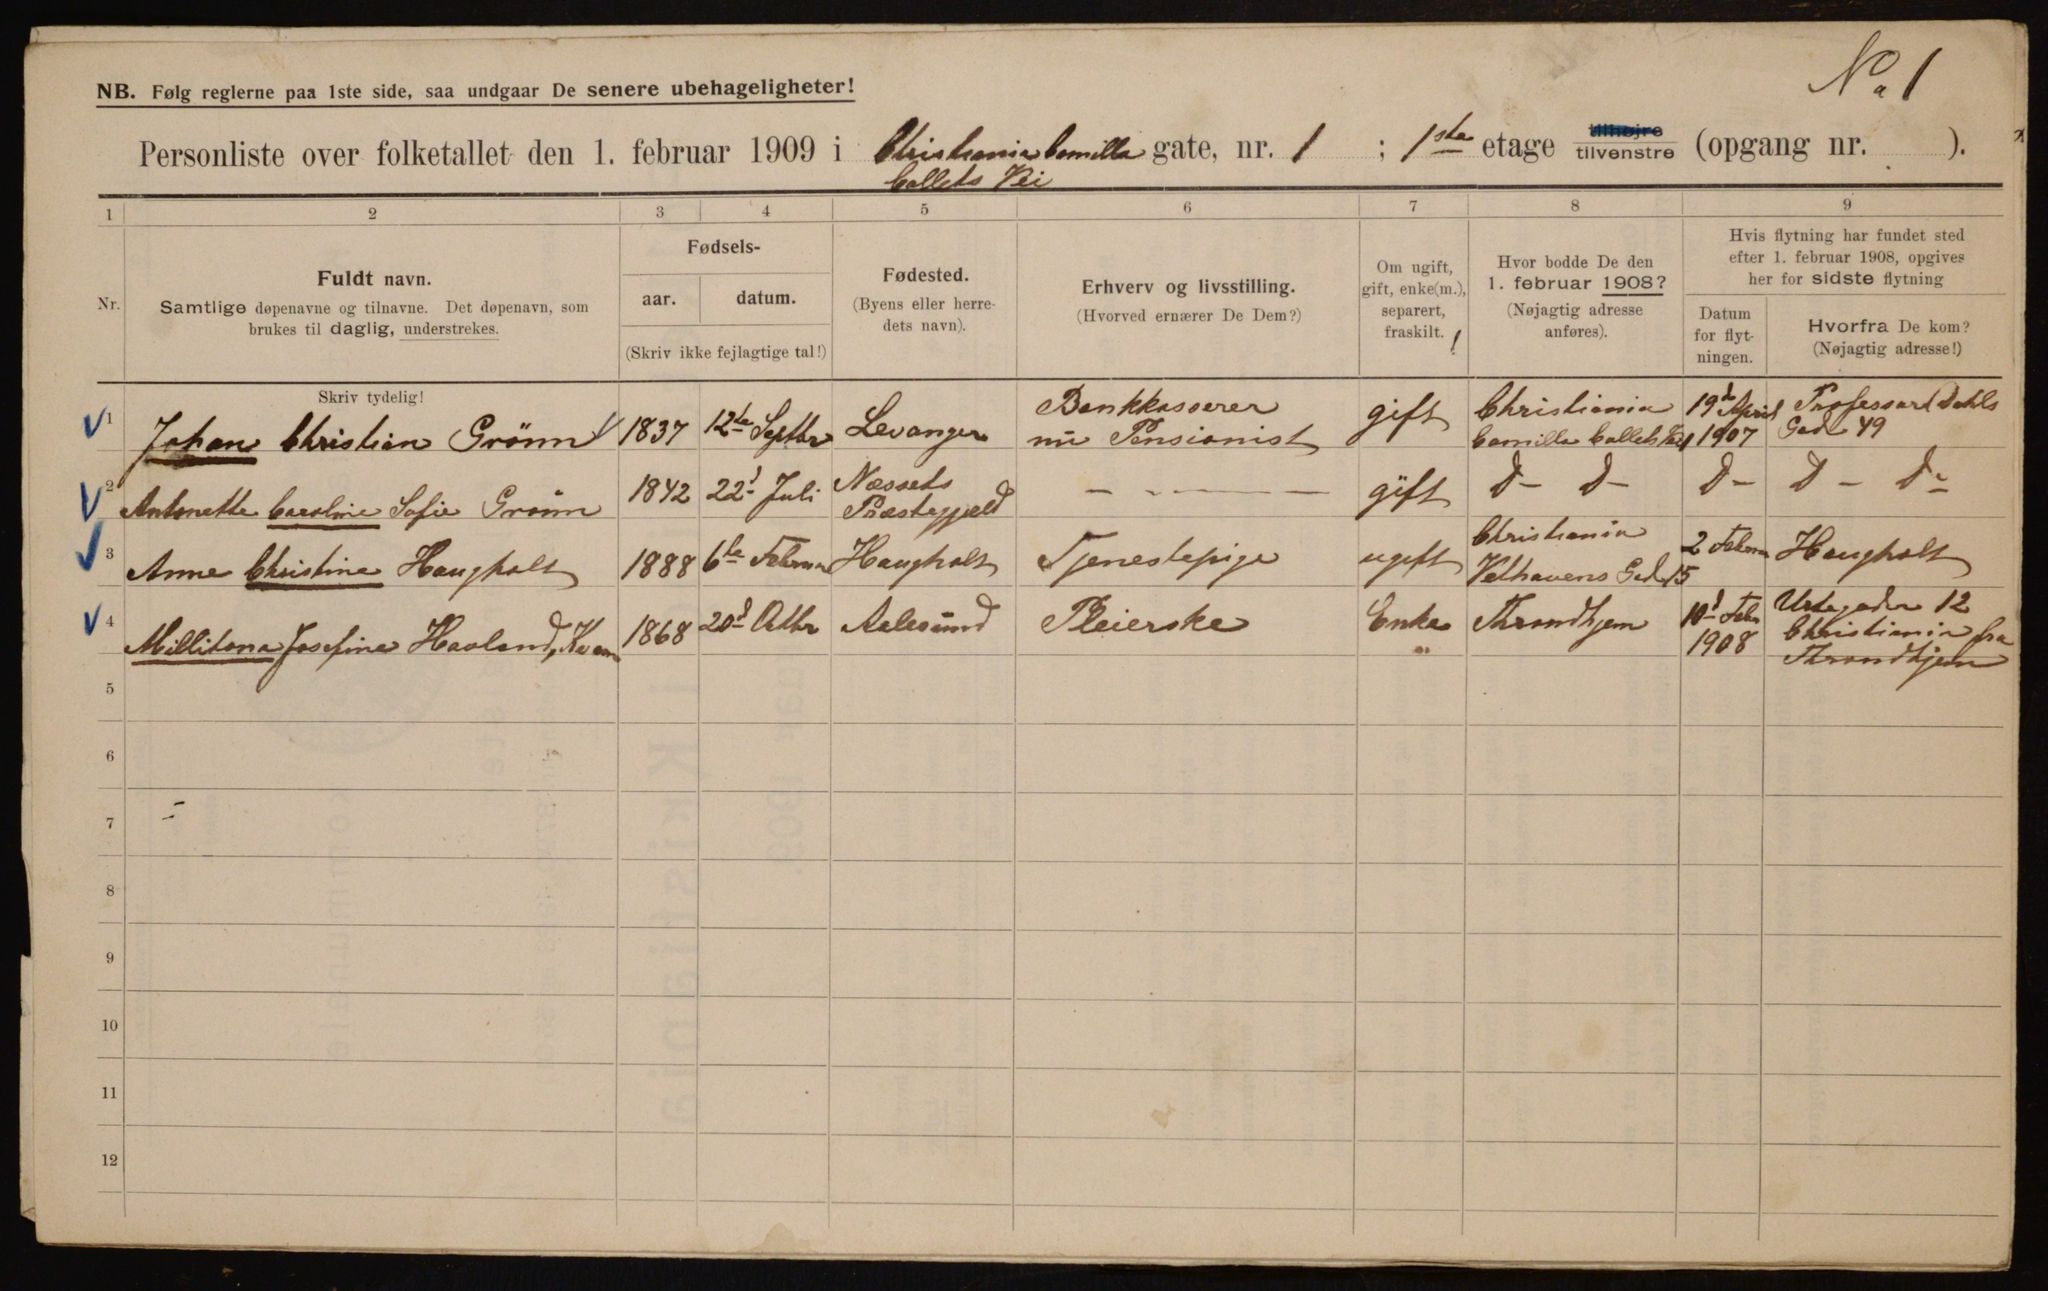 No 1
NB. Følg reglerne paa 1ste side, saa undgaar De senere ubehageligheter!
Personliste over folketallet den 1. februar 1909 i Christiania Camilla gate, nr. 1 ; 1ste etage tilhøjre tilvenstre (opgang nr. ).
Collets Vei
1 2 3 4 5 6 7 8 9
Nr.
Fuldt navn.
Samtlige døpenavne og tilnavne. Det døpenavn, som
brukes til daglig, understrekes.
Fødsels-
aar. datum.
(Skriv ikke fejlagtige tal!)
Fødested.
(Byens eller herre-
dets navn).
Erhverv og livsstilling.
(Hvorved ernærer De Dem?)
Om ugift,
gift, enke(m.),
separert,
fraskilt.
Hvor bodde De den
1. februar 1908?
(Nøjagtig adresse
anføres).
Hvis flytning har fundet sted
efter 1. februar 1908, opgives
her for sidste flytning
Datum
for flyt-
ningen.
Hvorfra De kom?
(Nøjagtig adresse!)
Skriv tydelig!
1 Johan Christian Grönn 1837 12te Septbr Levanger Bankkasserer nu Pensionist gift Christiania Camilla Collets Vei 1 19d April 1907 Professor Dahls Gade 49
2 Antonette Caroline Sofie Grönn 1842 22d Juli Næssets Præstegjæld — — — gift D— D— D— D— D—
3 Anne Christine Haugholt 1888 6te Februar Haugholt Tjenestepige ugift Christiania Velhavens Gade 15 2 Februar Haugholt
4 Millitona Josefine Havland, Kvam 1868 20d Octbr Aalesund Pleierske Enke Throndhjem 10d Febr 1908 Urtegaden 12 Christiania fra Throndhjem
5
6
7
8
9
10
11
12